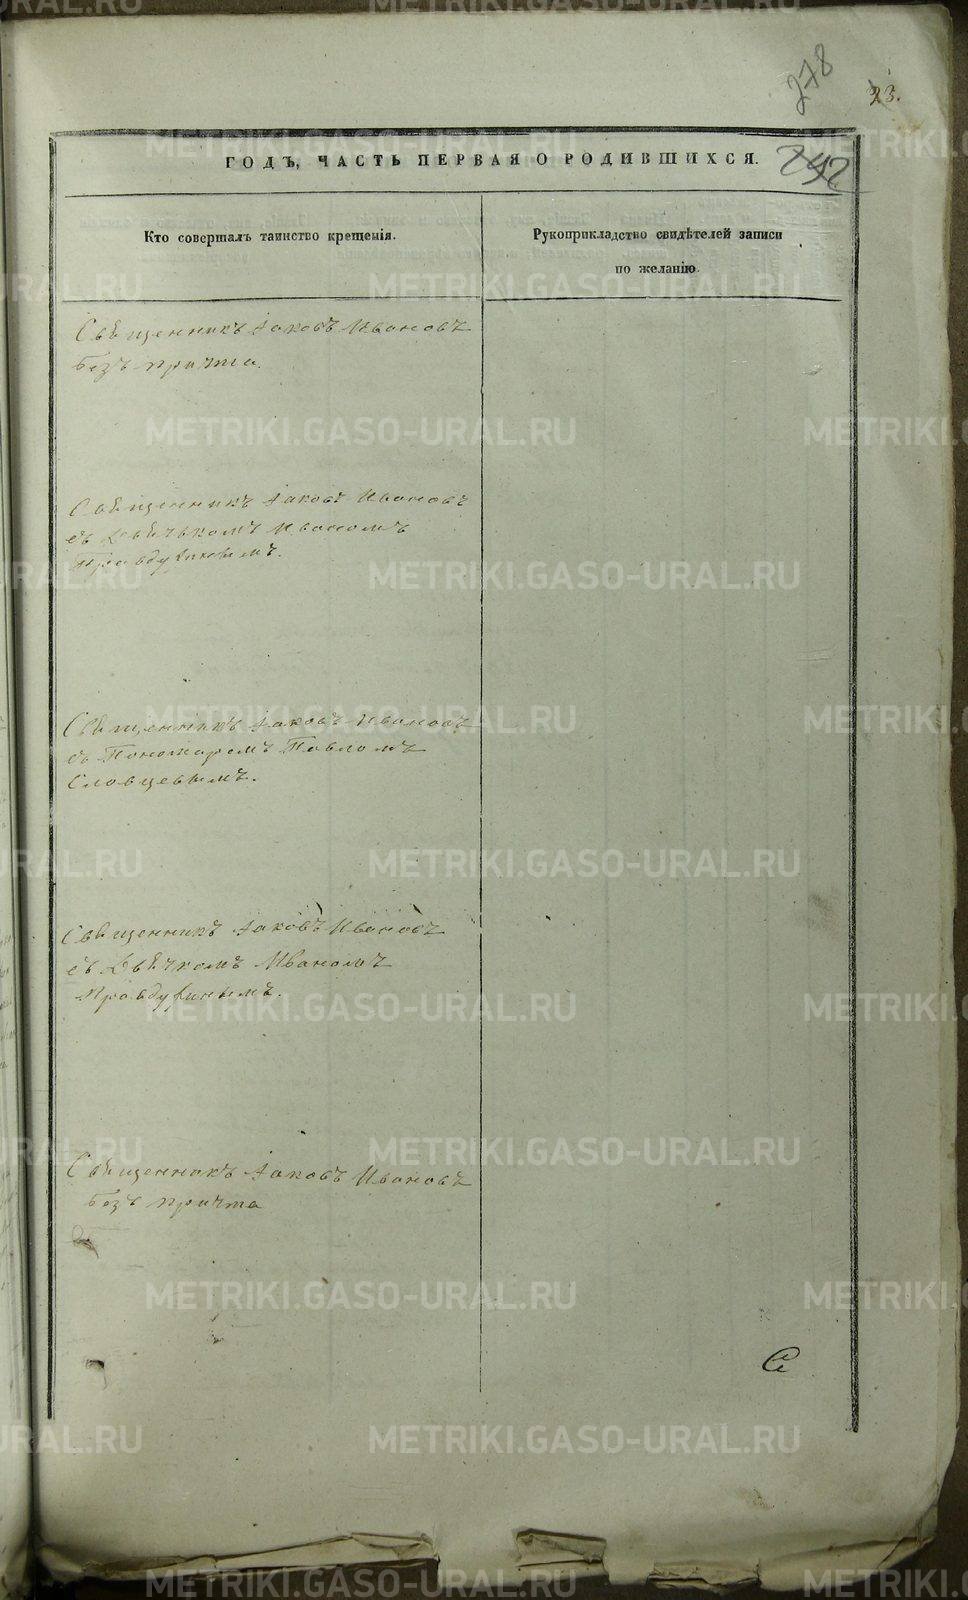 278
33.
ГОДЪ, ЧАСТЬ ПЕРВАЯ О РОДИВШИХСЯ.
242
Кто совершалъ таинство крещенія.
Рукоприкладство свидѣтелей записи
по желанію.
Священникъ Іаковъ Ивановъ
безъ причта.
Священникъ Іаковъ Ивановъ
съ Дьячькомъ Иваномъ
Правдухинымъ.
Священникъ Іаковъ Ивановъ
съ Пономаремъ Павломъ
Словцевымъ.
Священникъ Іаковъ Ивановъ
съ Дьячкомъ Иваномъ
Правдухинымъ.
Священникъ Іаковъ Ивановъ
безъ причта
METRIKI.GASO-URAL.RU